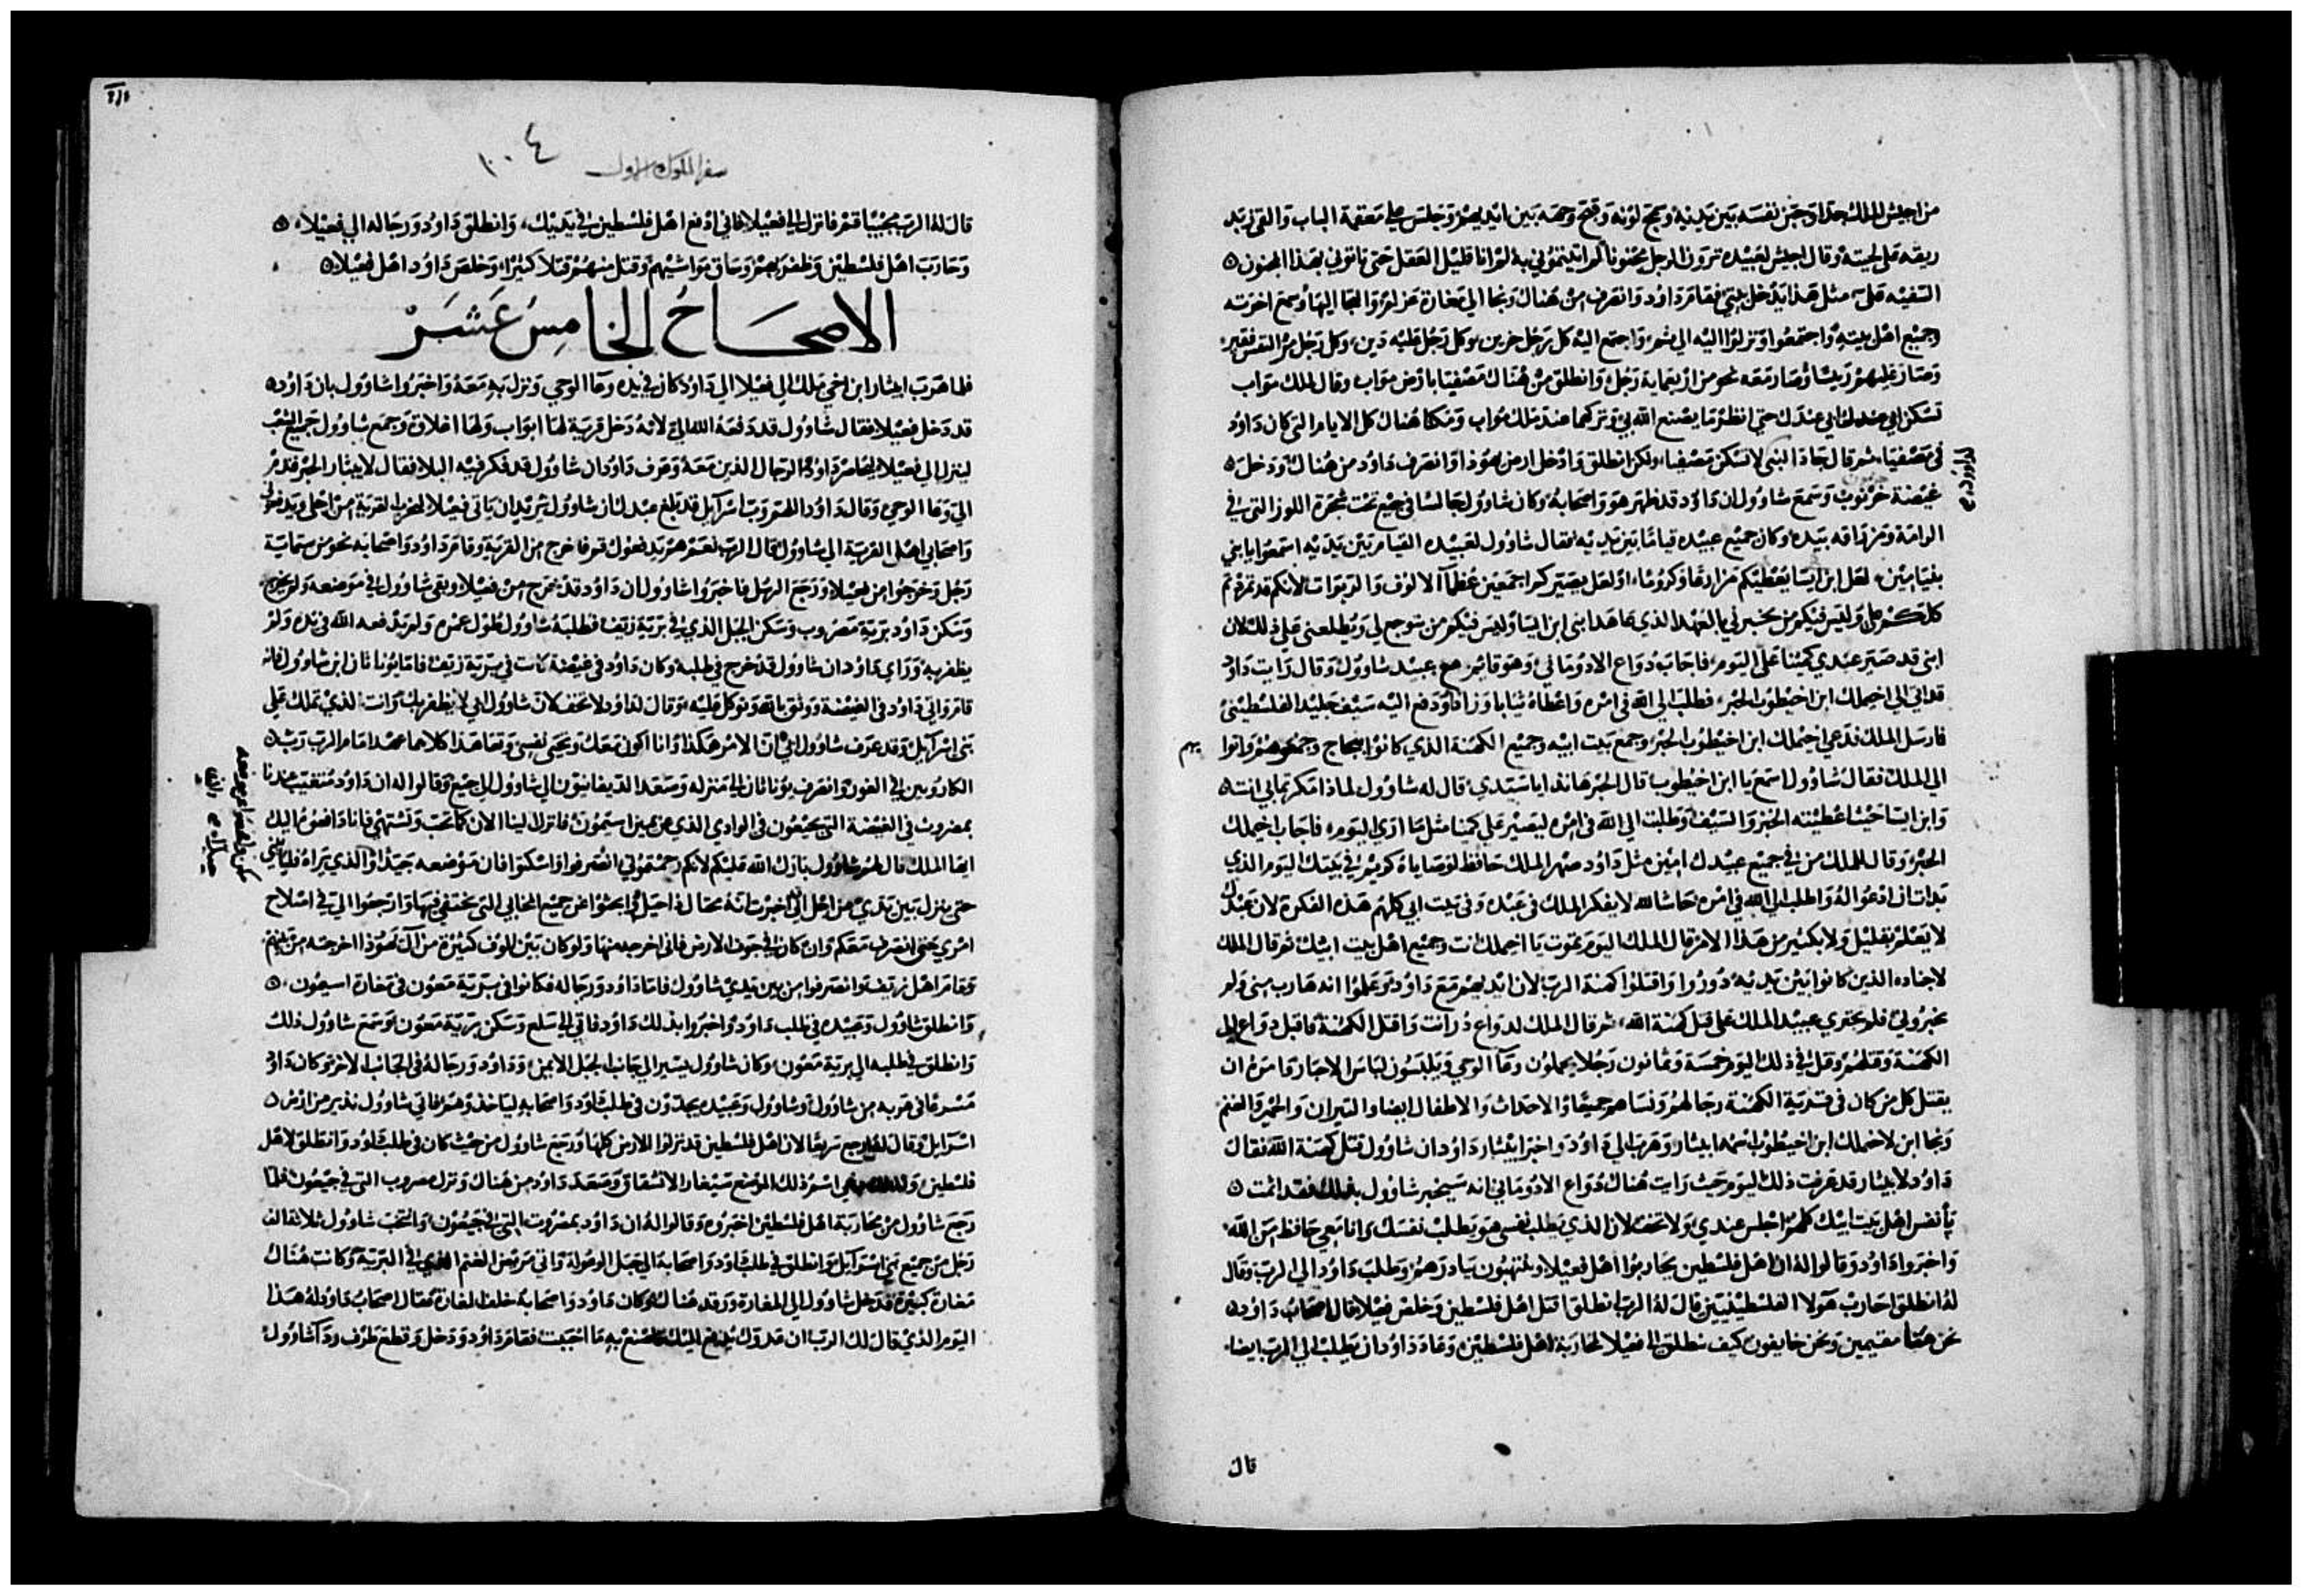 من اخيش الملك جدا وجنن نفسه بين يديه وسمج لونه وقبح وجهه بين ايديهم وجلس علي معقمة الباب والقي يد
ريقه علي لحيته وقال اخيش لعبيده ترون الرجل مجنونا لم اتيتموني به لم انا قليل العقل حتى تاتوني بهذا المجنون
السفيه علي مثل هذا يدخل بيتي فقام داود وانصرف من هناك ونجا الي مغارة عزلم والتجا اليها وسمع اخوته
وجميع اهل بيته واجتمعوا ونزلوا اليه الي ثم، واجتمع اليه كل رجل حزين وكل رجل عليه دين، وكل رجل مر النفس فقير
وصار عليهم رييسا وصار معه نحو من اربعماية رجل وانطلق من هناك مصفيا بارض مواب وقال لملك مواب
تسكن ابي عندك وامي عندك حتي انظر ما يصنع الله بي وتركهما عند ملك مواب ومكثا هناك كل الايام التي كان داود
في مصفيا، ثم قال جاد النبي لا تسكن مصفيا، ولكن انطلق وادخل ارض يهوذا وانصرف داود من هناك ودخل
غيضة خرنوب وسمع شاوول ان داود قد ظهر هو واصحابه وكان شاوول جالسا في جبع تحت شجرة اللوز التي في
الرامة ومزراقه بيده وكان جميع عبيده قياما بين يديه فقال شاوول لعبيده القيام بين يديه اسمعوا يا بني
بنيامين، لعل ابن ايسا يعطيكم مزارعا وكروما، او لعل يصيركم اجمعين عظما الالوف والربوات لانكم قد تمردتم
كلكم علي وليس فيكم من يخبرني بالعهد الذي عاهد ابني ابن ايسا وليس فيكم من يتوجع لي ويطلعني علي ذلك لان
ابني قد صير عبدي كمينا علي اليوم، فاجاب دواع الادوماني وهو قايم مع عبيد شاوول وقال رايت داود
قد اتي الي اخيملك ابن اخيطوب الحبر، فطلب الي الله في امره واعطاه ثيابا وزادا ودفع اليه سيف جليد الفلسطيني
فارسل الملك فدعي اخيملك ابن اخيطوب الحبر وجمع بيت ابيه وجميع الكهنة الذي كانوا بنجاج وجمعوهم واتوا
الي الملك فقال شاوول اسمع يا ابن اخيطوب قال الحبر هانذا يا سيدي قال له شاوول لماذا مكرتما بي انت
وابن ايسا حيث اعطيته الخبز والسيف وطلبت الي الله في امره ليصير علي كمينا مثل ما اري اليوم، فاجاب اخيملك
الحبر وقال للملك من في جميع عبيدك امين مثل داود صهر الملك حافظ لوصاياه كريم في بيتك اليوم الذي
بدات ان ادعو له واطلب الي الله في امره حاشا لله لا يفكر الملك في عبده وفي بيت ابي كلهم هذه الفكرة لان عبدك
لا يعلم بقليل ولا بكثير من هذا الامر قال الملك اليوم تموت يا اخيملك انت وجميع اهل بيت ابيك ثم قال الملك
لاجناده الذين كانوا بين يديه دوروا واقتلوا كهنة الرب لان ايديهم مع داود وعلموا انه هارب مني ولم
يخبروني فلم يجتري عبيد الملك علي قتل كهنة الله، ثم قال الملك لدواع در انت واقتل الكهنة فاقبل دواع الي
الكهنة وقتلهم وقتل في ذلك اليوم خمسة وثمانون رجلا يحملون وعا الوحي ويلبسون لباس الاحبار وامره ان
يقتل كل من كان في قرية الكهنة رجالهم ونساهم جميعا والاحداث والاطفال ايضا والتيران والحمير والغنم
ونجا ابن لاخيملك ابن اخيطوب اسمه ابيثار وهرب الي داود واخبر ابيثار داود ان شاوول قتل كهنة الله فقال
داود لابيثار قد عرفت ذلك اليوم حيث رايت هناك دواع الادوماني انه سيخبر شاوول بذلك فقد اثمت
بانفس اهل بيت ابيك كلهم اجلس عندي ولا تخف لان الذي يطلب نفسي هو يطلب نفسك وانا معي حافظ من الله
واخبروا داود وقالوا له ان اهل فلسطين يحاربوا اهل قعيلا وينتهبون بيادرهم وطلب داود الي الرب وقال
له انطلق احارب هولا الفلسطينيين قال له الرب انطلق اقتل اهل فلسطين وخلص قعيلا قال اصحاب داود
نحن هنا مقيمين ونحن خايفون كيف ننطلق الي قعيلا لمحاربة اهل فلسطين وعاد داود ان يطلب الي الرب ايضا،
قال
سفر الملوك الاول
١٠٤
قال له الرب مجيبا قم فانزل الي قعيلا فاني ادفع اهل فلسطين في يديك، وانطلق داود ورجاله الي قعيلا،
وحارب اهل فلسطين وظفر بهم وساق مواشيهم وقتل منهم قتلا كثيرا، وخلص داود اهل قعيلا
الاصحاح الخامس عشر
فلما هرب ابيثار ابن اخيملك الي قعيلا الي داود كان في يده وعا الوحي ونزل به معه واخبروا شاوول بان داود
قد دخل قعيلا فقال شاوول قد دفعه الله الي لانه دخل قرية لها ابواب ولها اغلاق وجمع شاوول جميع الشعب
لينزل الي قعيلا ليحاصر داود والرجال الذين معه وعرف داود ان شاوول قد فكر فيه البلا فقال لابيثار الحبر قدم
الي وعا الوحي وقال داود اللهم رب اسرايل قد بلغ عبدك ان شاوول يريد ان ياتي قعيلا ليخرب القرية من اجلي ويدفعوني
واصحابي اهل القرية الي شاوول قال الرب نعم هم يدفعوك قم فاخرج من القرية وقام داود واصحابه نحو من ستماية
رجل وخرجوا من قعيلا ورجع الرسل فاخبروا شاوول ان داود قد خرج من قعيلا وبقي شاوول في موضعه ولم يخرج،
وسكن داود برية مصروب وسكن الجبل الذي في برية زيف فطلبه شاوول طول عمره ولم يدفعه الله في يده ولم
يظفر به وراي داود ان شاوول قد خرج في طلبه وكان داود في غيضة كانت في برية زيف فاما يوناثان ابن شاوول فانه
قام واتي داود في الغيضة ووثق بالله وتوكل عليه، وقال لداود لا تخف لان شاوول ابي لا يظفر بك وانت الذي تملك علي
بني اسرايل وقد عرف شاوول ابي ان الامر هكذا وانا اكون معك وتحيي نفسي وتعاهدا كلاهما عهدا امام الرب رب
الكاروبين في الغور وانصرف يوناثان الي منزله وصعد الديفانيون الي شاوول الي جبع وقالوا له ان داود متغيب عندنا
بمصروث في الغيضة التي بجبعون في الوادي الذي عن يمين استيمون فانزل الينا الان كما تحب وتشتهي فانا دافعوه اليك
ايها الملك قال لهم شاوول بارك الله عليكم لانكم رحمتموني انصرفوا واسكنوا فان موضعه جيدا والذي يراه فلياتيني
حتي ينزل بين يدي من اجل اني اخبرت انه محتال فاحيلوا وابحثوا عن جميع المخابي التي يختفي فيها وارجعوا الي في اصلاح
امري حتي انصرف معكم وان كان في جوف الارض فاني اخرجه منها ولو كان بين الوف كثيرة من آل يهوذا اخرجته من بينهم
وقام اهل زيف وانصرفوا من بين يدي شاوول فاما داود ورجاله فكانوا في برية معون في مغارة اسيمون،
وانطلق شاوول وعبيده في طلب داود واخبروا بذلك داود فاتي الي سلع وسكن برية معون وسمع شاوول ذلك
وانطلق في طلبه الي برية معون، وكان شاوول يسير الي جانب الجبل الايمن، وداود ورجاله في الجانب الاخر وكان داود
مسرعا في هربه من شاوول وشاوول وعبيده يجدون في طلب داود واصحابه لياخذوهم فاتي شاوول نذير من ارض
اسرايل وقال له ارجع سريعا لان اهل فلسطين قد نزلوا الارض كلها ورجع شاوول من حيث كان في طلب داود وانطلق لاهل
فلسطين ولذلك دعي اسم ذلك الموضع سيغار الانشقاق وصعد داود من هناك ونزل مصروب التي في جبعون فلما
رجع شاوول من محاربة اهل فلسطين اخبروه وقالوا له ان داود بمصروت التي في جبعون، وانتخب شاوول ثلاثة الف
رجل من جميع بني اسرايل وانطلق في طلب داود واصحابه الي جبل الوعولة واتي مربض الغنم الذي في البرية وكانت هناك
مغارة كبيرة فدخل شاوول الي المغارة ورقد هناك وكان داود واصحابه خلف المغارة فقال اصحاب داود له هذا
اليوم الذي قال لك الرب ان عدوك يدفع اليك فاصنع به ما احببت فقام داود ودخل وقطع طرف ردا شاوول